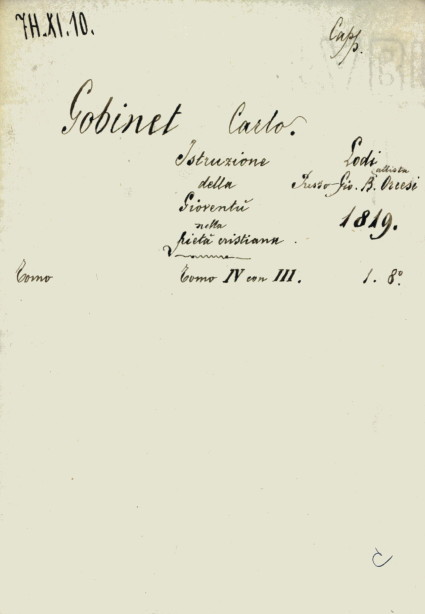 7H.XI.10.
Capp.
Gobinet Carlo.
Istruzione
della
Gioventù
nella
pietà cristiana.
Lodi
Presso Gio. Battista Orcesi
1819.
Tomo Tomo IV con III. 1. 8°.
C